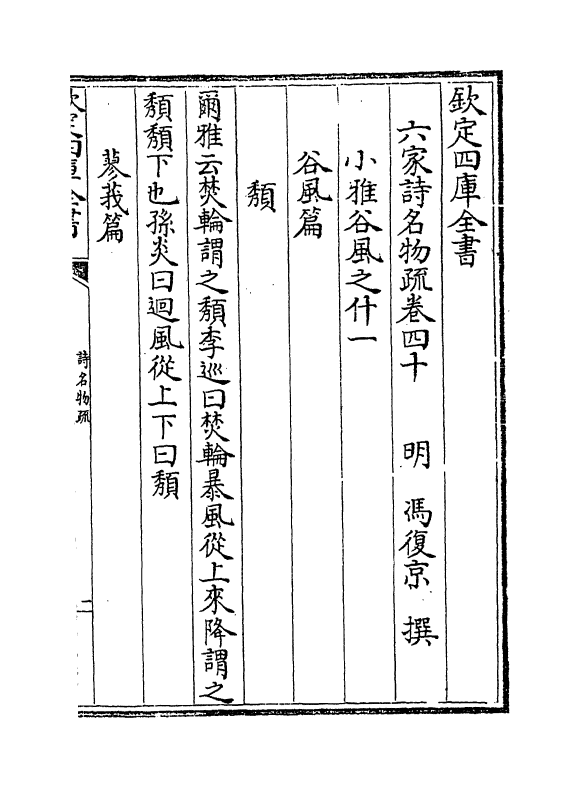 欽定四庫全書
六家詩名物疏卷四十　明　馮復京　撰
小雅谷風之什一
谷風篇
頽
爾雅云焚輪謂之頽李巡曰焚輪暴風從上來降謂之
頽頽下也孫炎曰迴風從上下曰頽
蓼莪篇
欽定四庫全書
詩名物疏